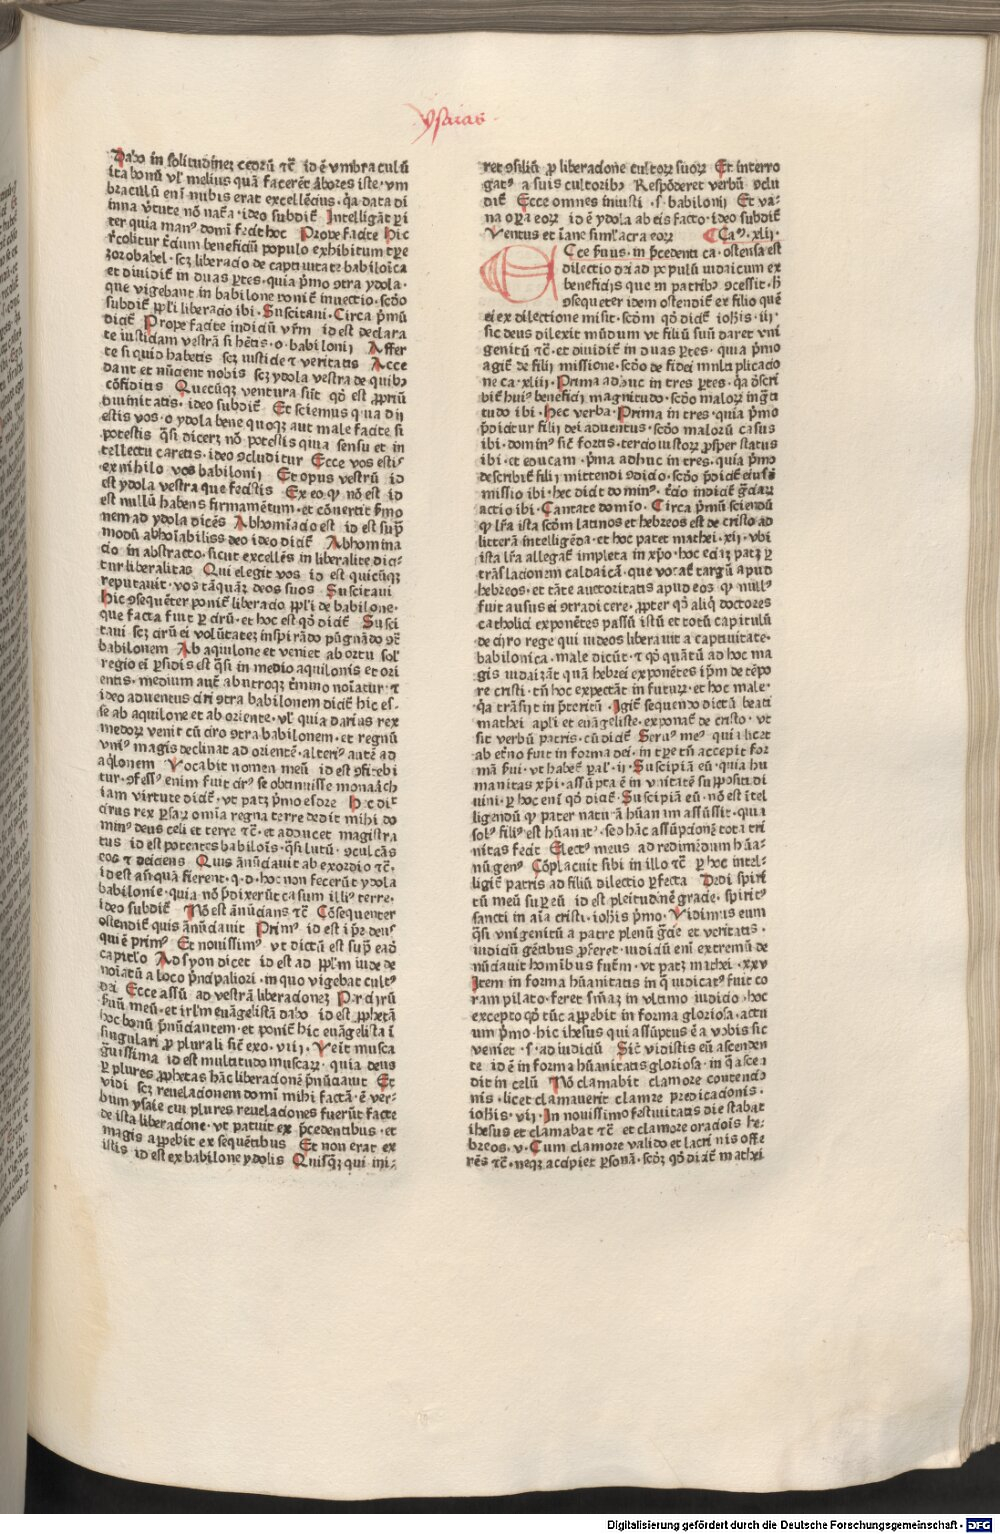 ysaias
Dabo in solitudinez cedrū ⁊c̄ id ē vmbraculū
ita bonū vl' melius quā facerēt arbores iste · vm
braculū eni nubis erat excellēcius · q̄a data di
uina v̄tute nō nat̄a · ideo subdit̄ Intelligāt p̄i
ter quia man⁹ domī fecit hoc Prope facite Hic
r̄colitur t̄ciū beneficiū populo exhibitum tp̄e
zorobabel · scz liberacio de captiuitate babilōica
et diuidit̄ in duas p̄tes · quia p̄mo ↄtra ydola ·
que vigebant in babilone ponit̄ inuectio · sc̄do
subdit̄ pp̄li liberacio ibi · Suscitaui · Circa p̄mū
dicit̄ Prope facite iudiciū vr̄m id est declara
te iusticiam vestrā si hētis · o · babilonij Affer
te si quid habetis scz iusticie ⁊ veritatis Acce
dant et nūcient nobis scz ydola vestra de quibꝰ
cōfiditis Quecūqz ventura sūt qd̄ est ꝓpriū
diuinitatis · ideo subdit̄ Et sciemus q̄ua dij
estis vos · o ydola bene quoqz aut male facite si
potestis q̄si dicerz nō potestis quia sensu et in
tellectu caretis · ideo ↄcluditur Ecce vos estis
ex nihilo vos babilonij Et opus vestrū id
est ydola vestra que fecistis Ex eo qꝰ nō est id
est nullū habens firmamētum · et cōuertit s̄mo
nem ad ydola dicēs Abhomīacio est id est sup̄
modū abhoīabiliss deo ideo dicit̄ Abhomina
cio in abstracto · sicut excellēs in liberalite dici
tur liberalitas Qui elegit vos id est quicūqz
reputauit · vos tāquāz deos suos Suscitaui
Hic ↄsequēter ponit̄ liberacio pp̄li de babilone ·
que facta fuit ꝑ cirū · et hoc est qd̄ dicit̄ Susci
taui scz cirū ei volūtatez inspirādo pūgnādo ↄt̄
babilonem Ab aquilone et veniet ab ortu sol'
regio ei p̄sidis est q̄si in medio aquilonis et ori
entis · medium aut̄ ab utroqz t̄mino noīatur · ⁊
ideo aduentus ciri ↄtra babilonem dicit̄ hic es-
se ab aquilone et ab oriente · vl' quia darias rex
medoꝝ venit cū ciro ↄtra babilonem · et regnū
vni⁹ magis declinat ad orientē · alteri⁹ autē ad
aq̄lonem Vocabit nomen meū id est ↄfitebi
tur · ↄfess⁹ enim fuit cir⁹ se obtinuisse monaāch
iam virtute dicit̄ · vt patz p̄mo esdre Hec dicit
cirus rex p̄saꝝ omīa regna terre dedit mihi do
min⁹ deus celi et terre ⁊c̄ · et adducet magistra
tus id est potentes babilōis · q̄si lutū · ↄculcās
eos ⁊ deiciens Quis ānūciauit ab exordio ⁊c̄ ·
id est añquā fierent · q · d · hoc non fecerūt ydola
babilonie · quia nō p̄dixerūt casum illi⁹ terre ·
ideo subdit̄ Nō est ānūcians ⁊c̄ Cōsequenter
ostendit̄ quis ānūciauit Prim⁹ id est ip̄e deus
qui ē prim⁹ Et nouissim⁹ vt dictū est sup̄ eodē
capitlo Ad syon dicet id est ad pp̄l'm iude de
noīatū a loco p̄ncipaliori · in quo vigebat cult⁹
dei Ecce assū ad vestrā liberacionez Per cirū
ꝑuū meū · et irl'm euāgelistā dabo id est ꝓphetā
hoc bonū p̄nūciantem · et ponit̄ hic euāgelista ī
singulari ꝓ plurali sic̄ exo · viij · Veīt musca
ḡuissima id est multitudo muscaꝝ · quia deus
ꝑ plures ꝓphetas hāc liberacionē p̄nūciauit Et
vidi scz reuelacionem domī mihi factā · ē ver-
bum ysaie cui plures reuelaciones fuerūt facte
de ista liberacione · vt patuit ex p̄cedentibus · et
magis apparebit ex sequētibus Et non erat ex
istis id est ex babilone ydolis Quisqz qui ini-
ret ↄsiliū ꝓ liberacione cultoꝝ suoꝝ Et interro
gat⁹ a suis cultoribꝰ Respōderet verbū ↄclu
dit̄ Ecce omnes iniusti · s · babilonij Et va-
na opera eoꝝ id ē ydola ab eis facto · ideo subdit̄
Ventus et iane siml'acra eoꝝ ¶ Ca⁹ · xlij ·
ECce ꝑuus · in p̄cedenti ca · ostensa est
dilectio dei ad populū iudaicum ex
beneficijs que in patribꝰ ↄcessit · h̄
ↄsequeter idem ostendit̄ ex filio quē
ei ex dilectione misit · sc̄om qd̄ dicit̄ iohis · iij ·
sic deus dilexit mūdum vt filiū suū daret vni
genitū ⁊c̄ · et diuidit̄ in duas p̄tes · quia p̄mo
agit̄ de filij missione · sc̄do de fidei multiplicacio
ne ca · xliij · Prima adhuc in tres p̄tes · q̄a dscri
bit̄ hui⁹ beneficij magnitudo · sc̄do maloꝝ ing̃ti
tudo ibi · Hec verba · Prima in tres · quia p̄mo
p̄dicitur filij dei aduentus · sc̄do malorū casus
ibi · domin⁹ sic̄ fortis · tercio iustoꝝ ꝓsper status
ibi · et educam · p̄ma adhuc in tres · quia p̄mo
describit̄ filij mittendi ↄdicio · sc̄do p̄dicit̄ eiusdē
missio ibi · hec dicit domin⁹ · t̄cio indicit̄ gr̄aꝝ
actio ibi · Cantate domīo · Circa p̄mū sciendū
qꝰ lr̄a ista sc̄om latinos et hebreos est de cristo ad
litterā intelligēda · et hoc patet mathei · xij · vbi
ista lr̄a allegat̄ impleta in xp̄o · hoc eciaz patz ꝑ
trāslacionem caldaicā · que vocat̄ targū apud
hebreos · et tāte auctoritatis apud eos qꝰ null⁹
fuit ausus ei ↄtradicere · ꝓpter qd̄ aliq̄ doctores
catholici exponētes passū istū et totū capitulū
de ciro rege qui iudeos liberauit a captiuitate ·
babilonica · male dicūt · ⁊ qd̄ quātū ad hoc ma
gis iudaizāt quā hebrei exponētes ip̄m de tēpo
re cristi · tn̄ hoc expectāt in futuꝝ · et hoc male ·
q̄a trāsijt in p̄teritū · Igit̄ sequendo dictū beati
mathei apl'i et euāgeliste · exponat̄ de cristo · vt
sit verbū patris · cū dicit̄ Seru⁹ me⁹ qui licet
ab et̄no fuit in forma dei · in tp̄e tn̄ accepit for
mā ꝑui · vt habet̄ p̄al' · ij · Suscipiā eū · quia hu
manitas xp̄i · assūpta ē in vnitatē suppositi di
uini · ꝑ hoc eni qd̄ dicit̄ · Suscipiā eū · nō est ītel
ligendū qꝰ pater naturā hūanam assūssit · quia
sol⁹ fili⁹ est hūanat⁹ · sed hāc assūpcionē tota tri
nitas fecit Elect⁹ meus ad redimēdum hūa-
nū gen⁹ Cōplacuit sibi in illo ⁊c̄ ꝑ hoc intel-
ligit̄ patris ad filiū dilectio ꝑfecta Dedi spiri
tū meū super eū id est pleitudinē gracie · spirit⁹
sancti in aīa cristi · iohis p̄mo · Vidimus eum
q̄si vnigenitū a patre plenū gr̄cie et veritatis ·
iudiciū gētibus ꝓferet · iudiciū eni extremū de
nūciauit homībus futm̄ · vt patz mathei · xxv
Item in forma hūanitatis in q̄ iudicat⁹ fuit co
ram pilato · feret sn̄iaz in vltimo iudicio · hoc
excepto qd̄ tūc apparebit in forma gloriosa · actu
um p̄mo · hic ihesus qui assūptus ē a vobis sic
veniet · s · ad iudiciū Sic̄ vidistis eū ascenden
te id ē in forma hūanitatis gloriosa · in q̄ ascen
dit in celū Nō clamabit clamore contencio
nis · licet clamauerit clamore predicacionis ·
iohis · vij · In nouissimo festiuitatis die stabat
ihesus et clamabat ⁊c̄ et clamore oracōis he-
breos · v · Cum clamore valido et lacrimis offe
rēs ⁊c̄ · neqz accipiet ꝑsonā · sc̄dz qd̄ dicit̄ mathei
Digitalisierung gefördert durch die Deutsche Forschungsgemeinschaft - DFG